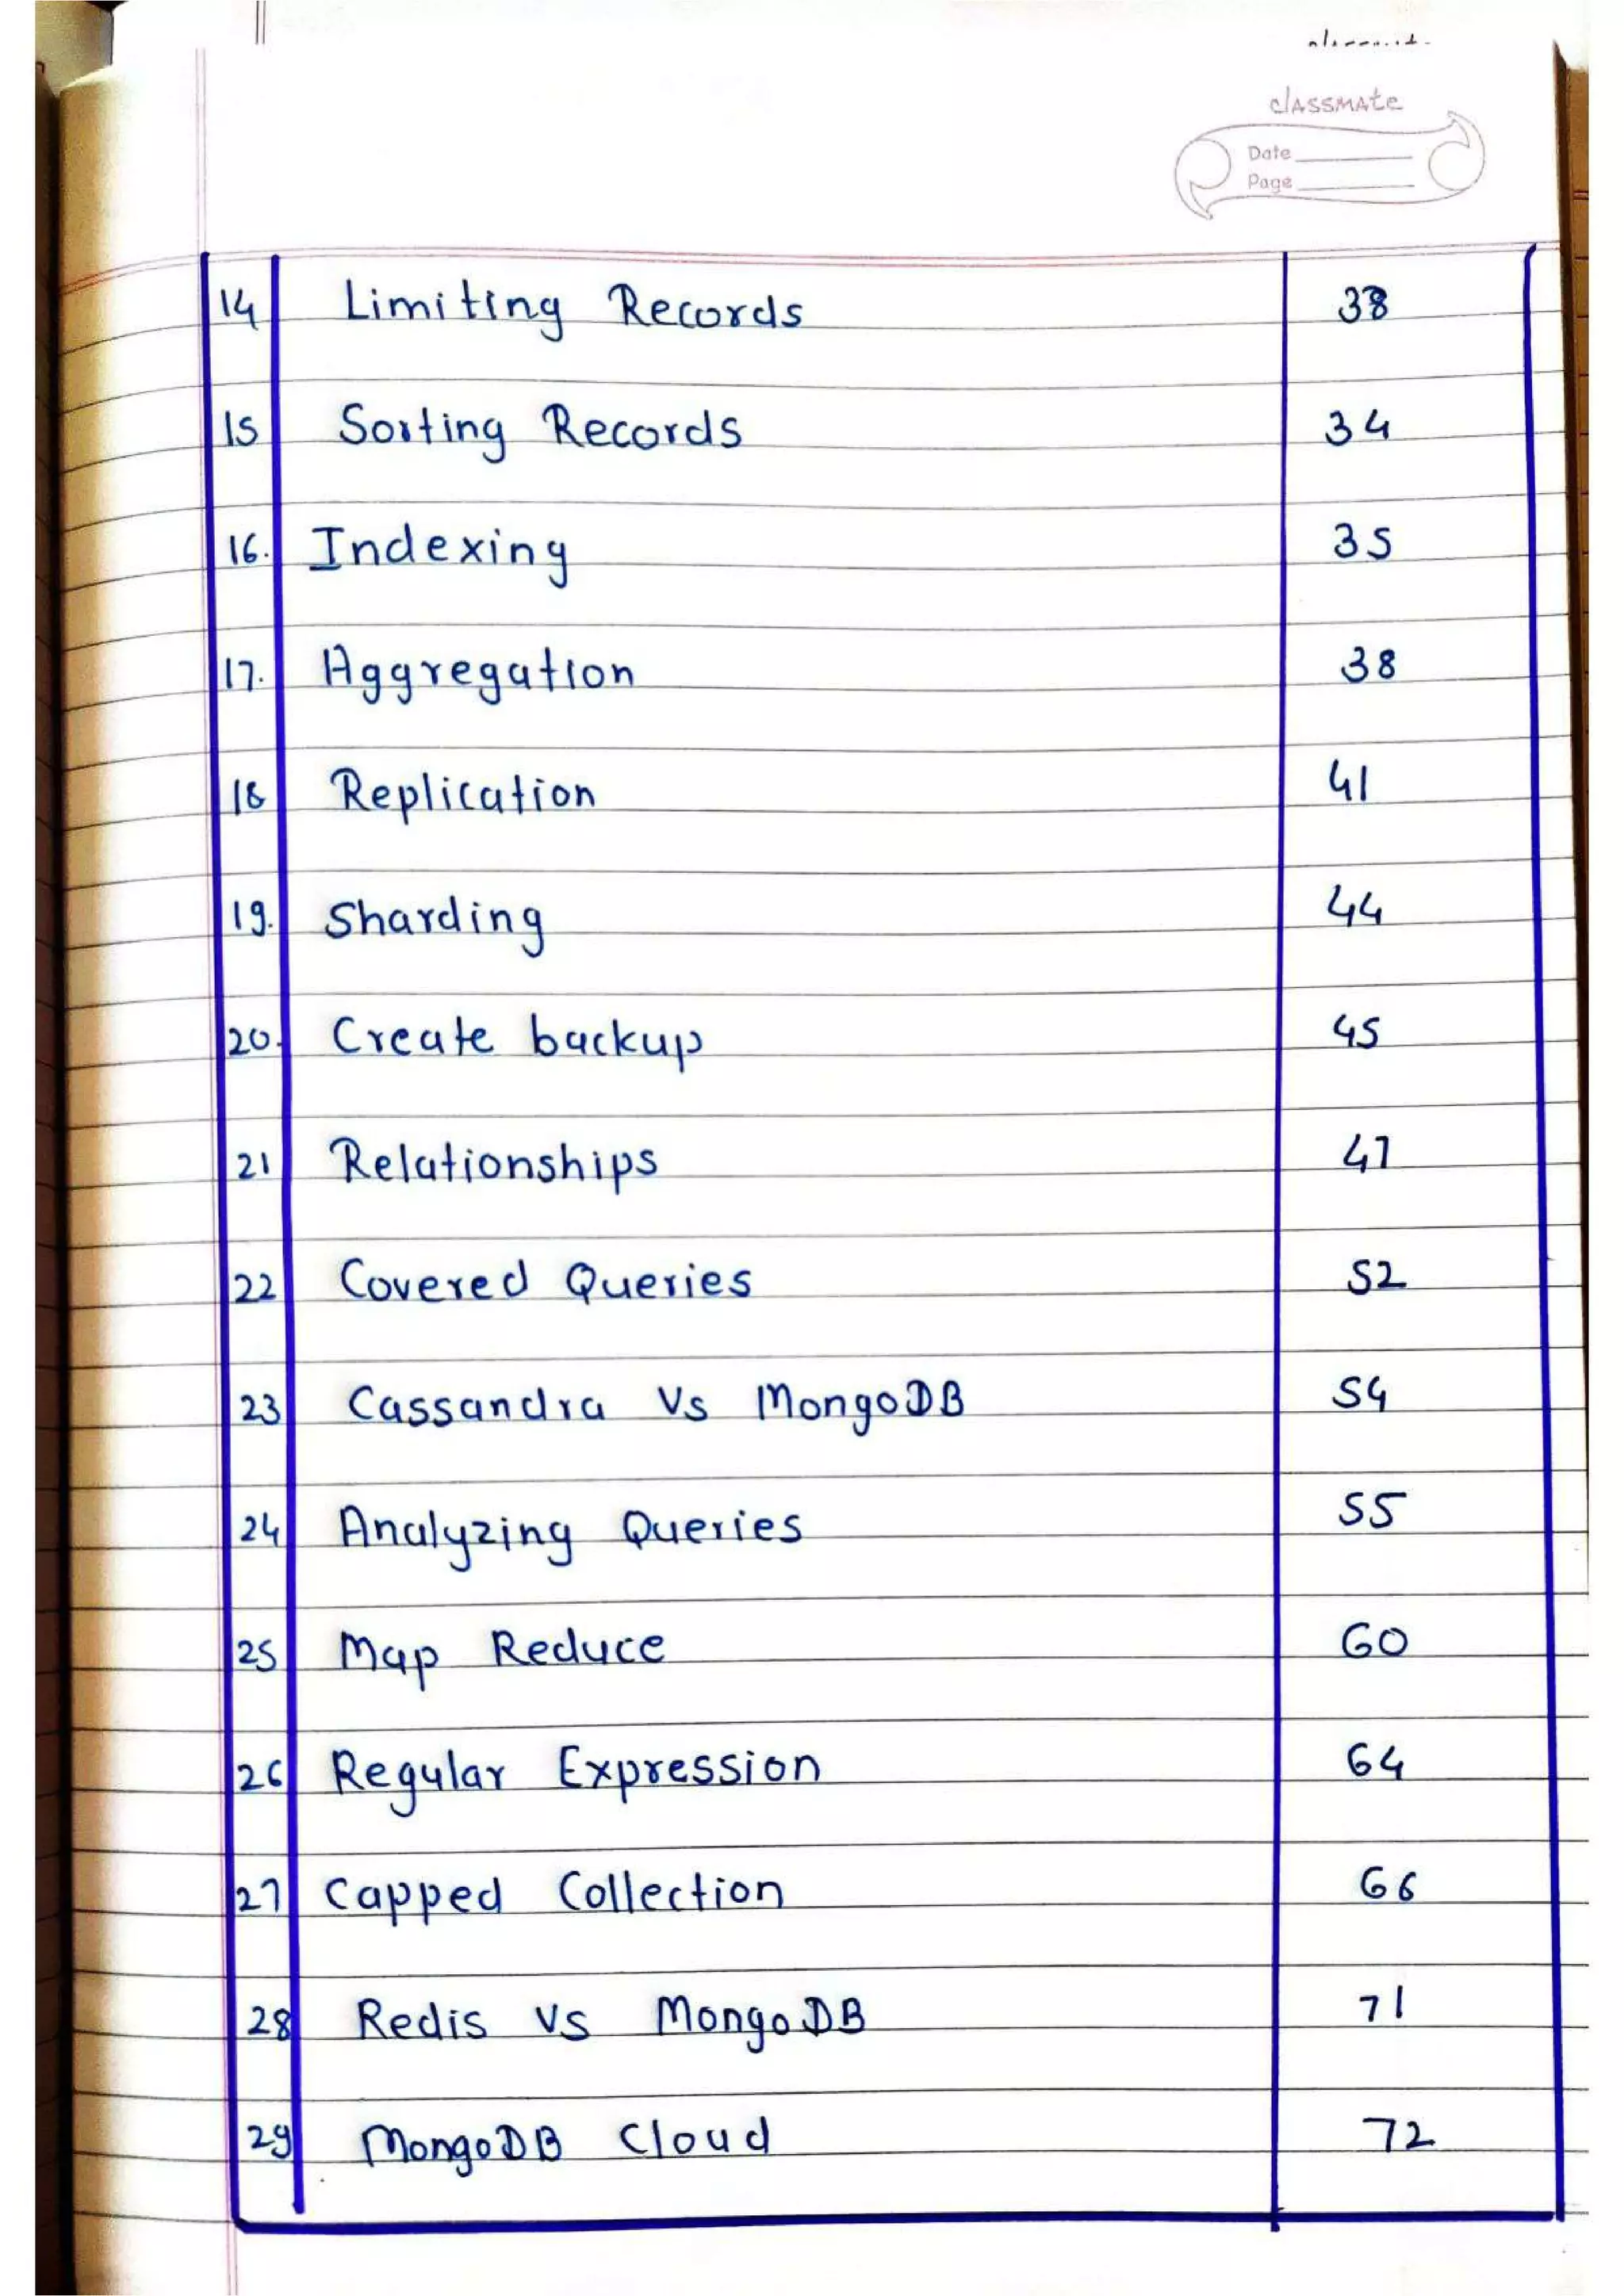 classmate
Date
Page
14 Limiting Records 33
15 Sorting Records 34
16. Indexing 35
17. Aggregation 38
18 Replication 41
19. Sharding 44
20. Create backup 45
21 Relationships 47
22 Covered Queries 52
23 Cassandra Vs MongoDB 54
24 Analyzing Queries 55
25 Map Reduce 60
26 Regular Expression 64
27 Capped Collection 66
28 Redis vs MongoDB 71
29 MongoDB Cloud 72